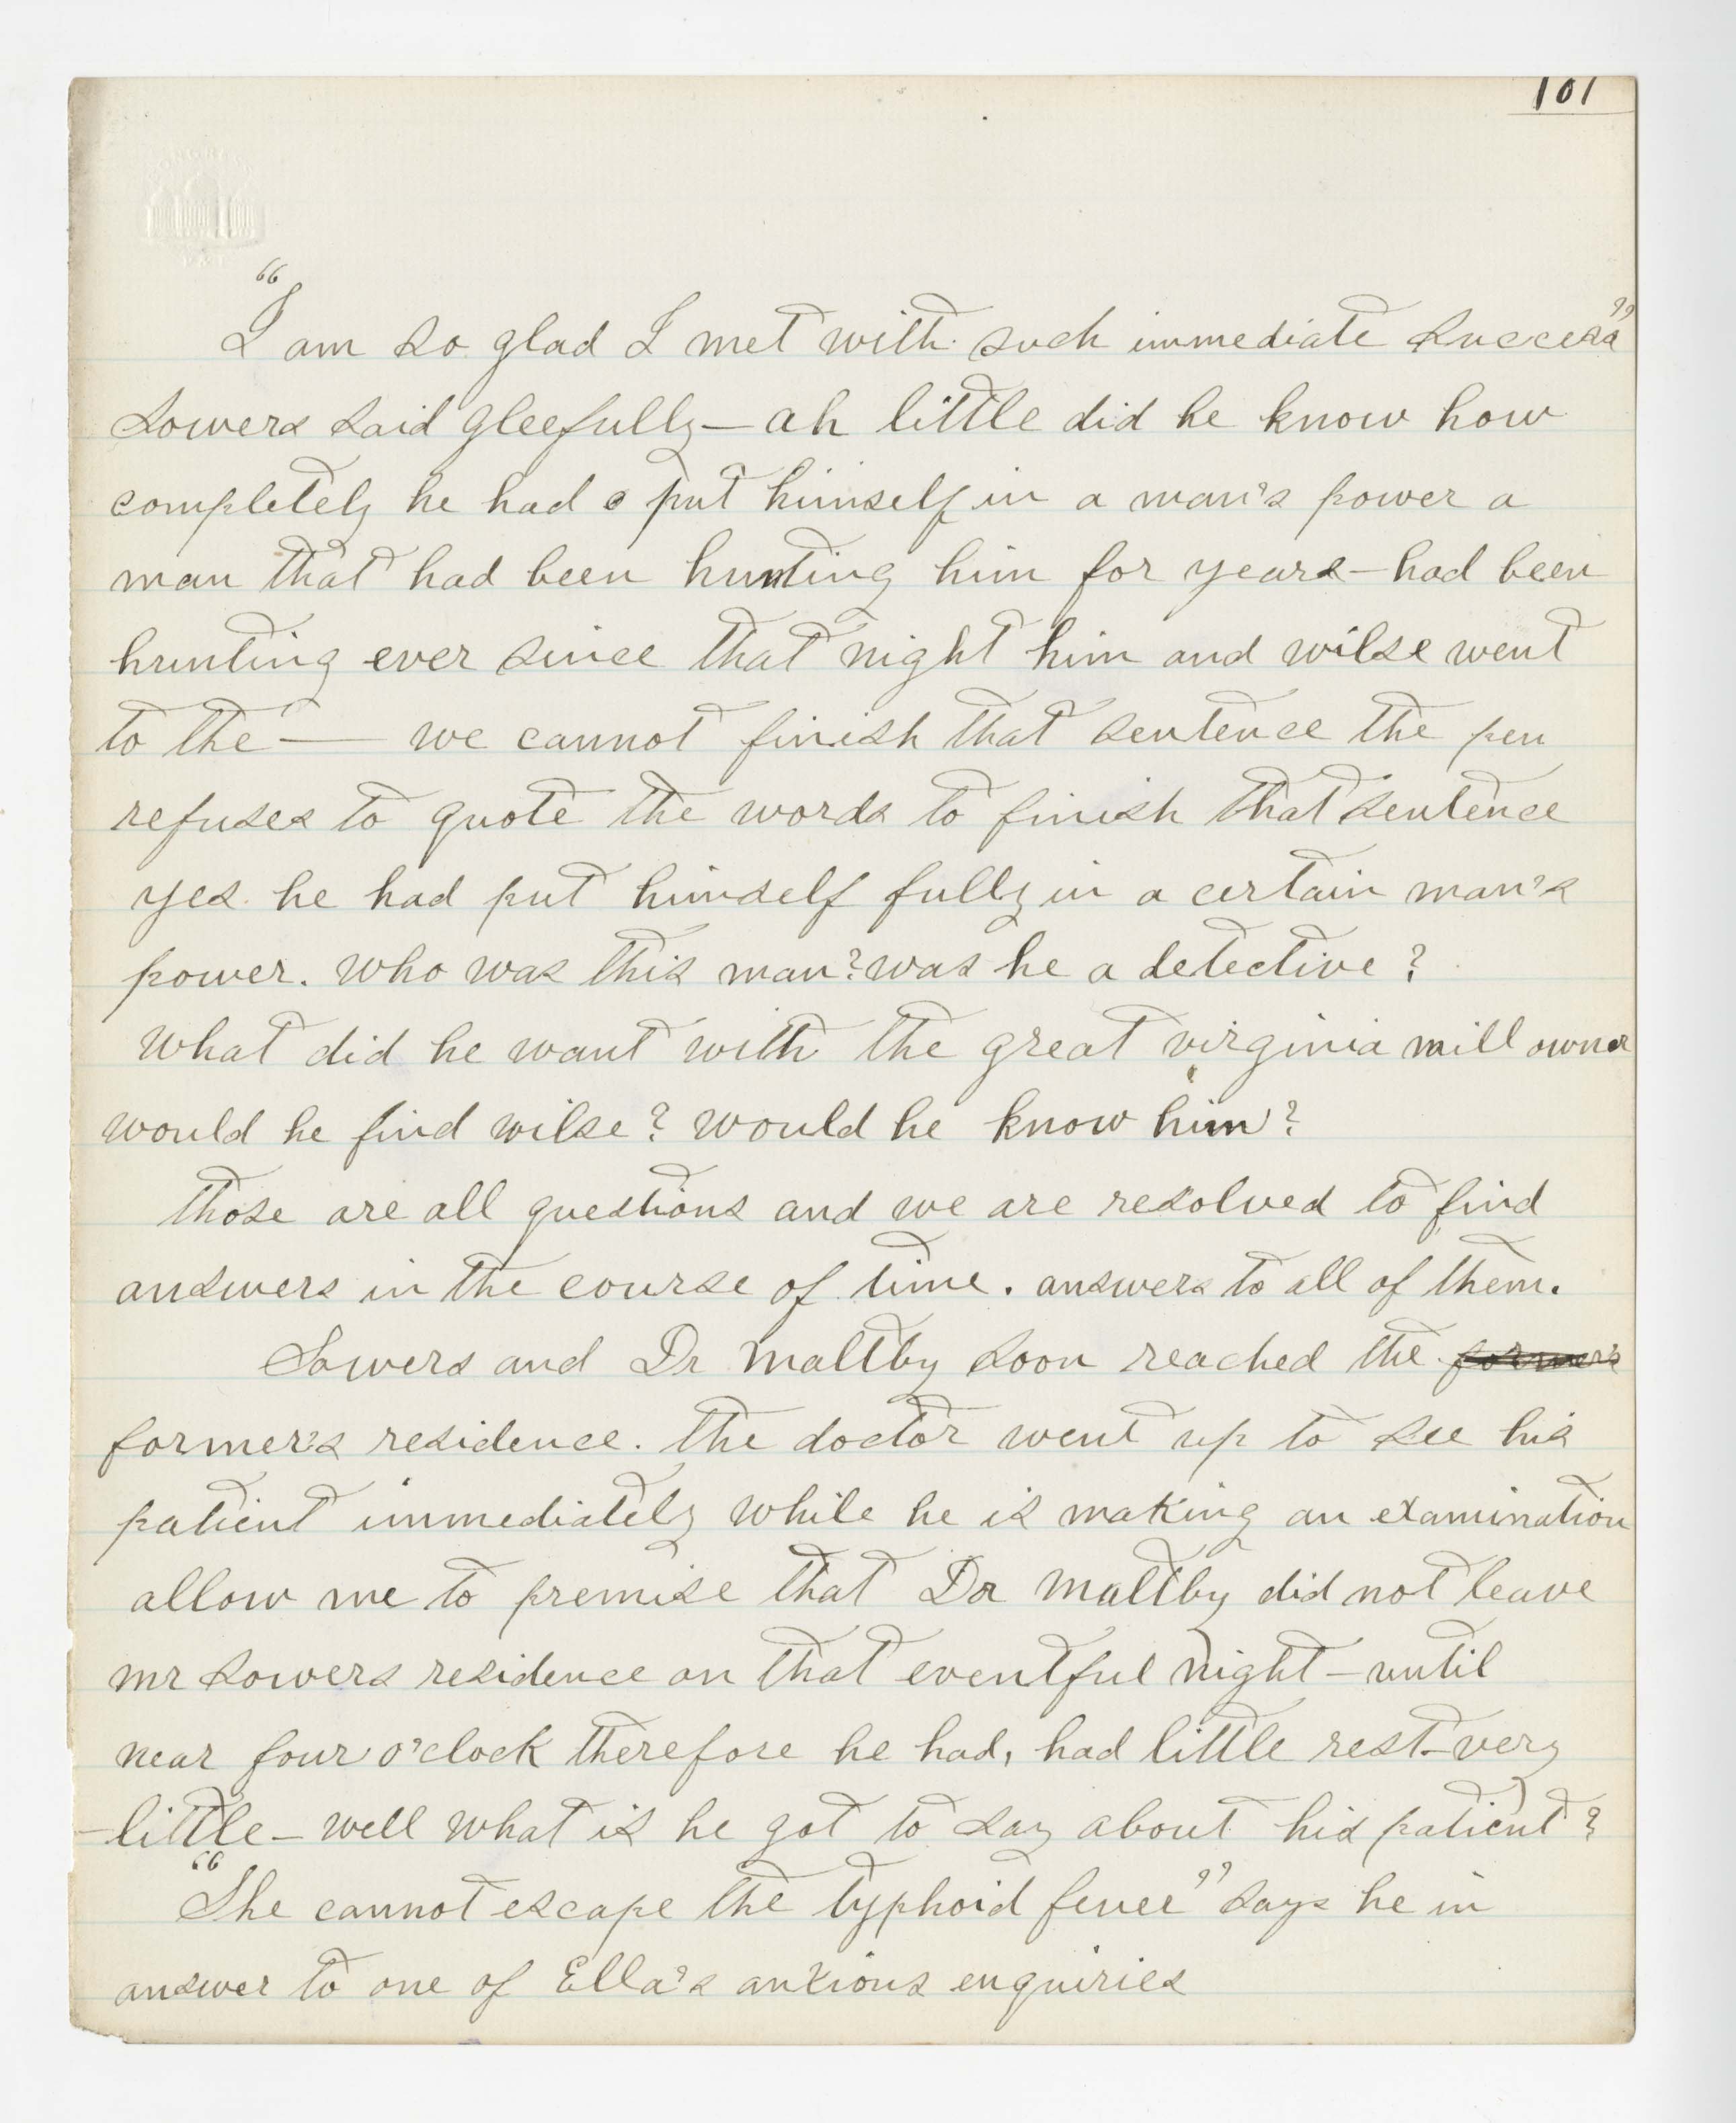 101
CONGRESS
"I am so glad I met with such immediate success"
Sowers said gleefully — ah little did he know how
completely he had put himself in a man's power a
man that had been hunting him for years — had been
hunting ever since that night him and wilse went
to the — we cannot finish that sentence the pen
refuses to quote the words to finish that sentence
yes he had put himself fully in a certain man's
power. who was this man? was he a detective?
what did he want with the great virginia mill owner
would he find wilse? would he know him?
those are all questions and we are resolved to find
answers in the course of time. answers to all of them.
Sowers and Dr Maltby soon reached the former's
former's residence. the doctor went up to see his
patient immediately while he is making an examination
allow me to premise that Dr Maltby did not leave
mr Sowers residence on that eventful night — until
near four o'clock therefore he had, had little rest — very
— little — well what is he got to say about his patient?
"She cannot escape the typhoid fever" says he in
answer to one of Ella's anxious enquiries